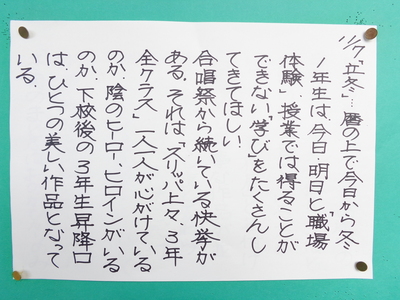 11/7「立冬」…暦の上で今日から冬
1年生は、今日・明日と「職場
体験」。授業では得ることが
できない「学び」をたくさんし
てきてほしい。
合唱祭から続いている快挙が
ある。それは、「スリッパ上々、3年
全クラス」一人一人が心がけている
のか、陰のヒーロー、ヒロインがいる
のか、下校後の3年生昇降口
は、ひとつの美しい作品となって
いる。